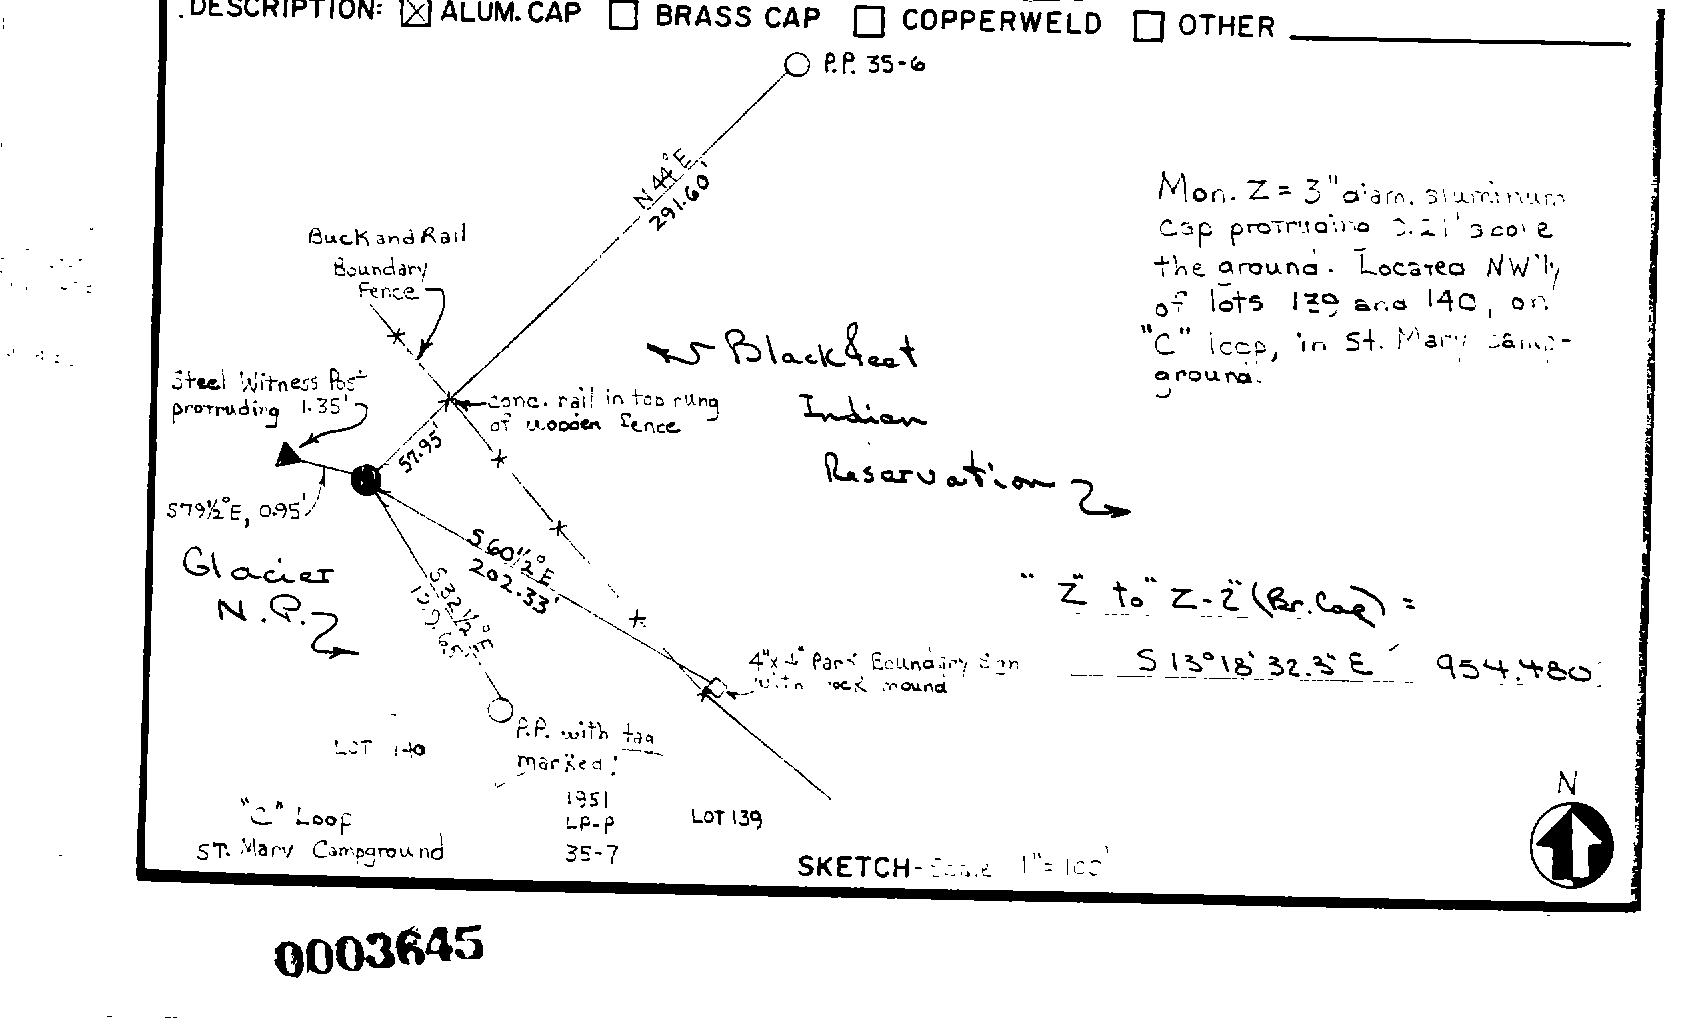 DESCRIPTION: ☒ ALUM. CAP ☐ BRASS CAP ☐ COPPERWELD ☐ OTHER
P.P. 35-6
N 44° E
291.60'
Mon. Z = 3" diam. aluminum
cap protruding 0.21' above
the ground. Located NW'ly
of lots 139 and 140, on
"C" loop, in St. Mary camp-
ground.
Buck and Rail
Boundary
Fence
Blackfeet
Indian
Reservation
Steel Witness Post
protruding 1.35'
conc. nail in top rung
of wooden fence
57.95'
S79½°E, 0.95'
Glacier
N.P.
S 60 1/2° E
202.33'
S 32 1/2° E
"Z" to "Z-2" (Br. Cap) =
S 13° 18' 32.3" E 954.480'
4"x4" Park Boundary sign
with rock mound
P.P. with tag
marked:
1951
LP-P
35-7
LOT 140
LOT 139
"C" Loop
ST. Mary Campground
SKETCH - Scale 1"= 100'
N
0003645